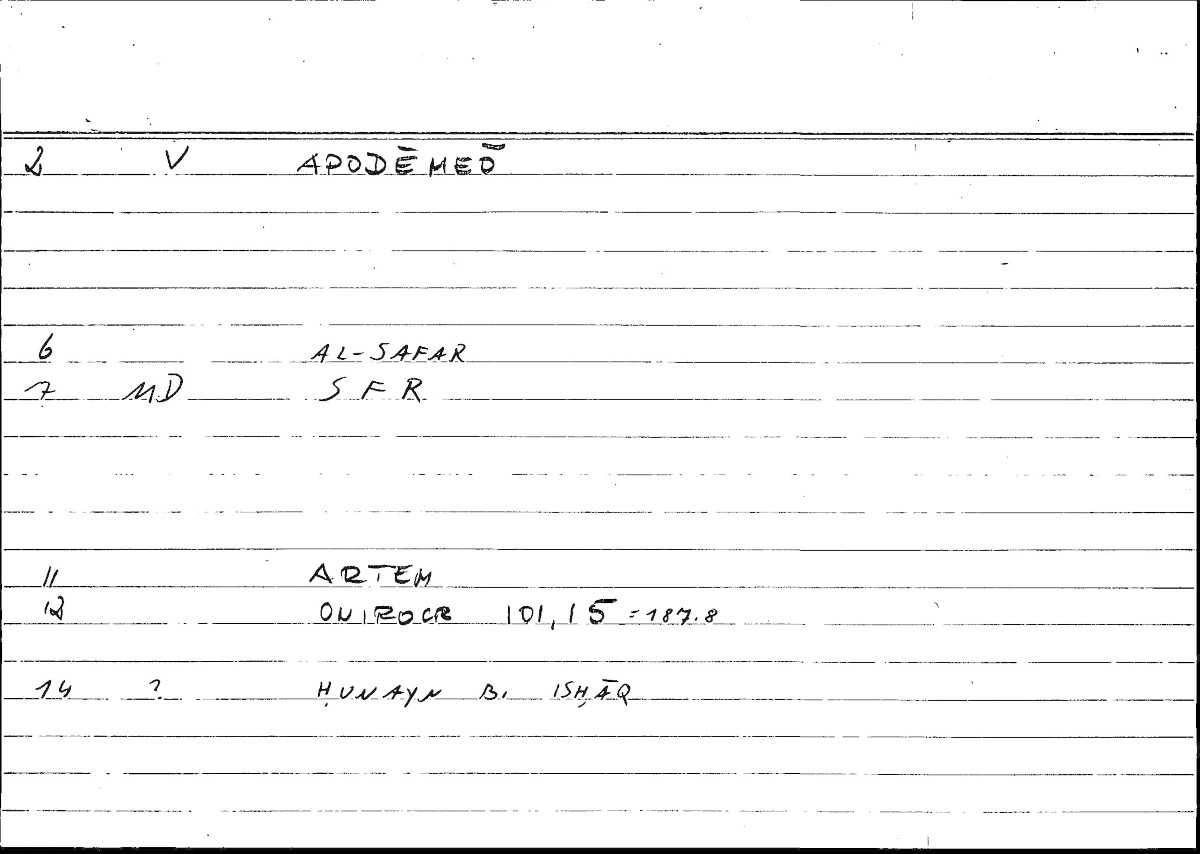 2 V APODĒMEŌ
6 AL-SAFAR
7 MD SFR
11 ARTEM
12 ONIROCR 101,15 = 187.8
14 ? ḤUNAYN B. ISḤĀQ